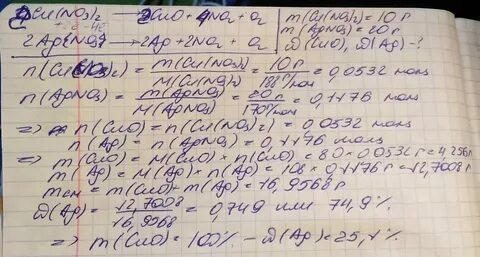 2Cu(NO3)2 → 2CuO + 4NO2 + O2
2AgNO3 → 2Ag + 2NO2 + O2
m(Cu(NO3)2) = 10 г
m(AgNO3) = 20 г
ω(CuO), ω(Ag) - ?
n(Cu(NO3)2) = m(Cu(NO3)2) / M(Cu(NO3)2) = 10 г / 188 г/моль = 0,0532 моль
n(AgNO3) = m(AgNO3) / M(AgNO3) = 20 г / 170 г/моль = 0,1176 моль
⇒ n(CuO) = n(Cu(NO3)2) = 0,0532 моль
n(Ag) = n(AgNO3) = 0,1176 моль
⇒ m(CuO) = M(CuO) × n(CuO) = 80 × 0,0532 г = 4,256 г
m(Ag) = M(Ag) × n(Ag) = 108 × 0,1176 г = 12,7008 г
mсм = m(CuO) + m(Ag) = 16,9568 г
ω(Ag) = 12,7008 / 16,9568 = 0,749 или 74,9%
⇒ m(CuO) = 100% - ω(Ag) = 25,1%